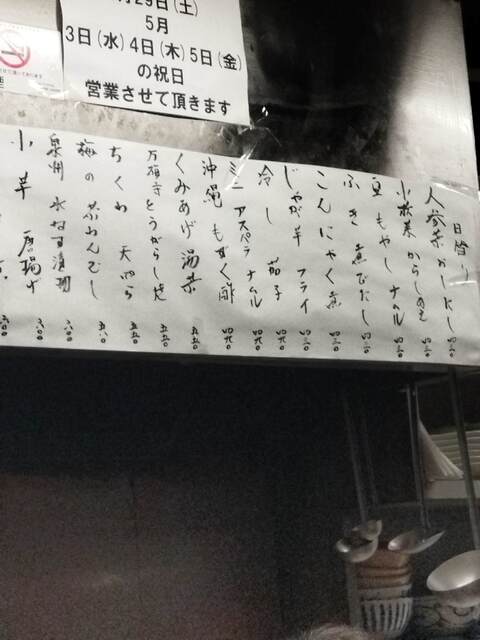 29日(土)
5月
3日(水)4日(木)5日(金)
の祝日
営業させて頂きます
日替り
人参葉おしたし 四三〇
小松菜からしあえ 四三〇
豆もやしナムル 四三〇
ふき煮びたし 四三〇
こんにゃく煮 四三〇
じゃが芋フライ 四三〇
冷し茄子 四九〇
ミニアスパラナムル 四九〇
沖縄もずく酢 四九〇
くみあげ湯葉 五五〇
万願寺とうがらし焼 五五〇
ちくわ天ぷら 五八〇
梅の茶わんむし 五八〇
泉州水なす漬物 六八〇
小芋唐揚げ 六八〇